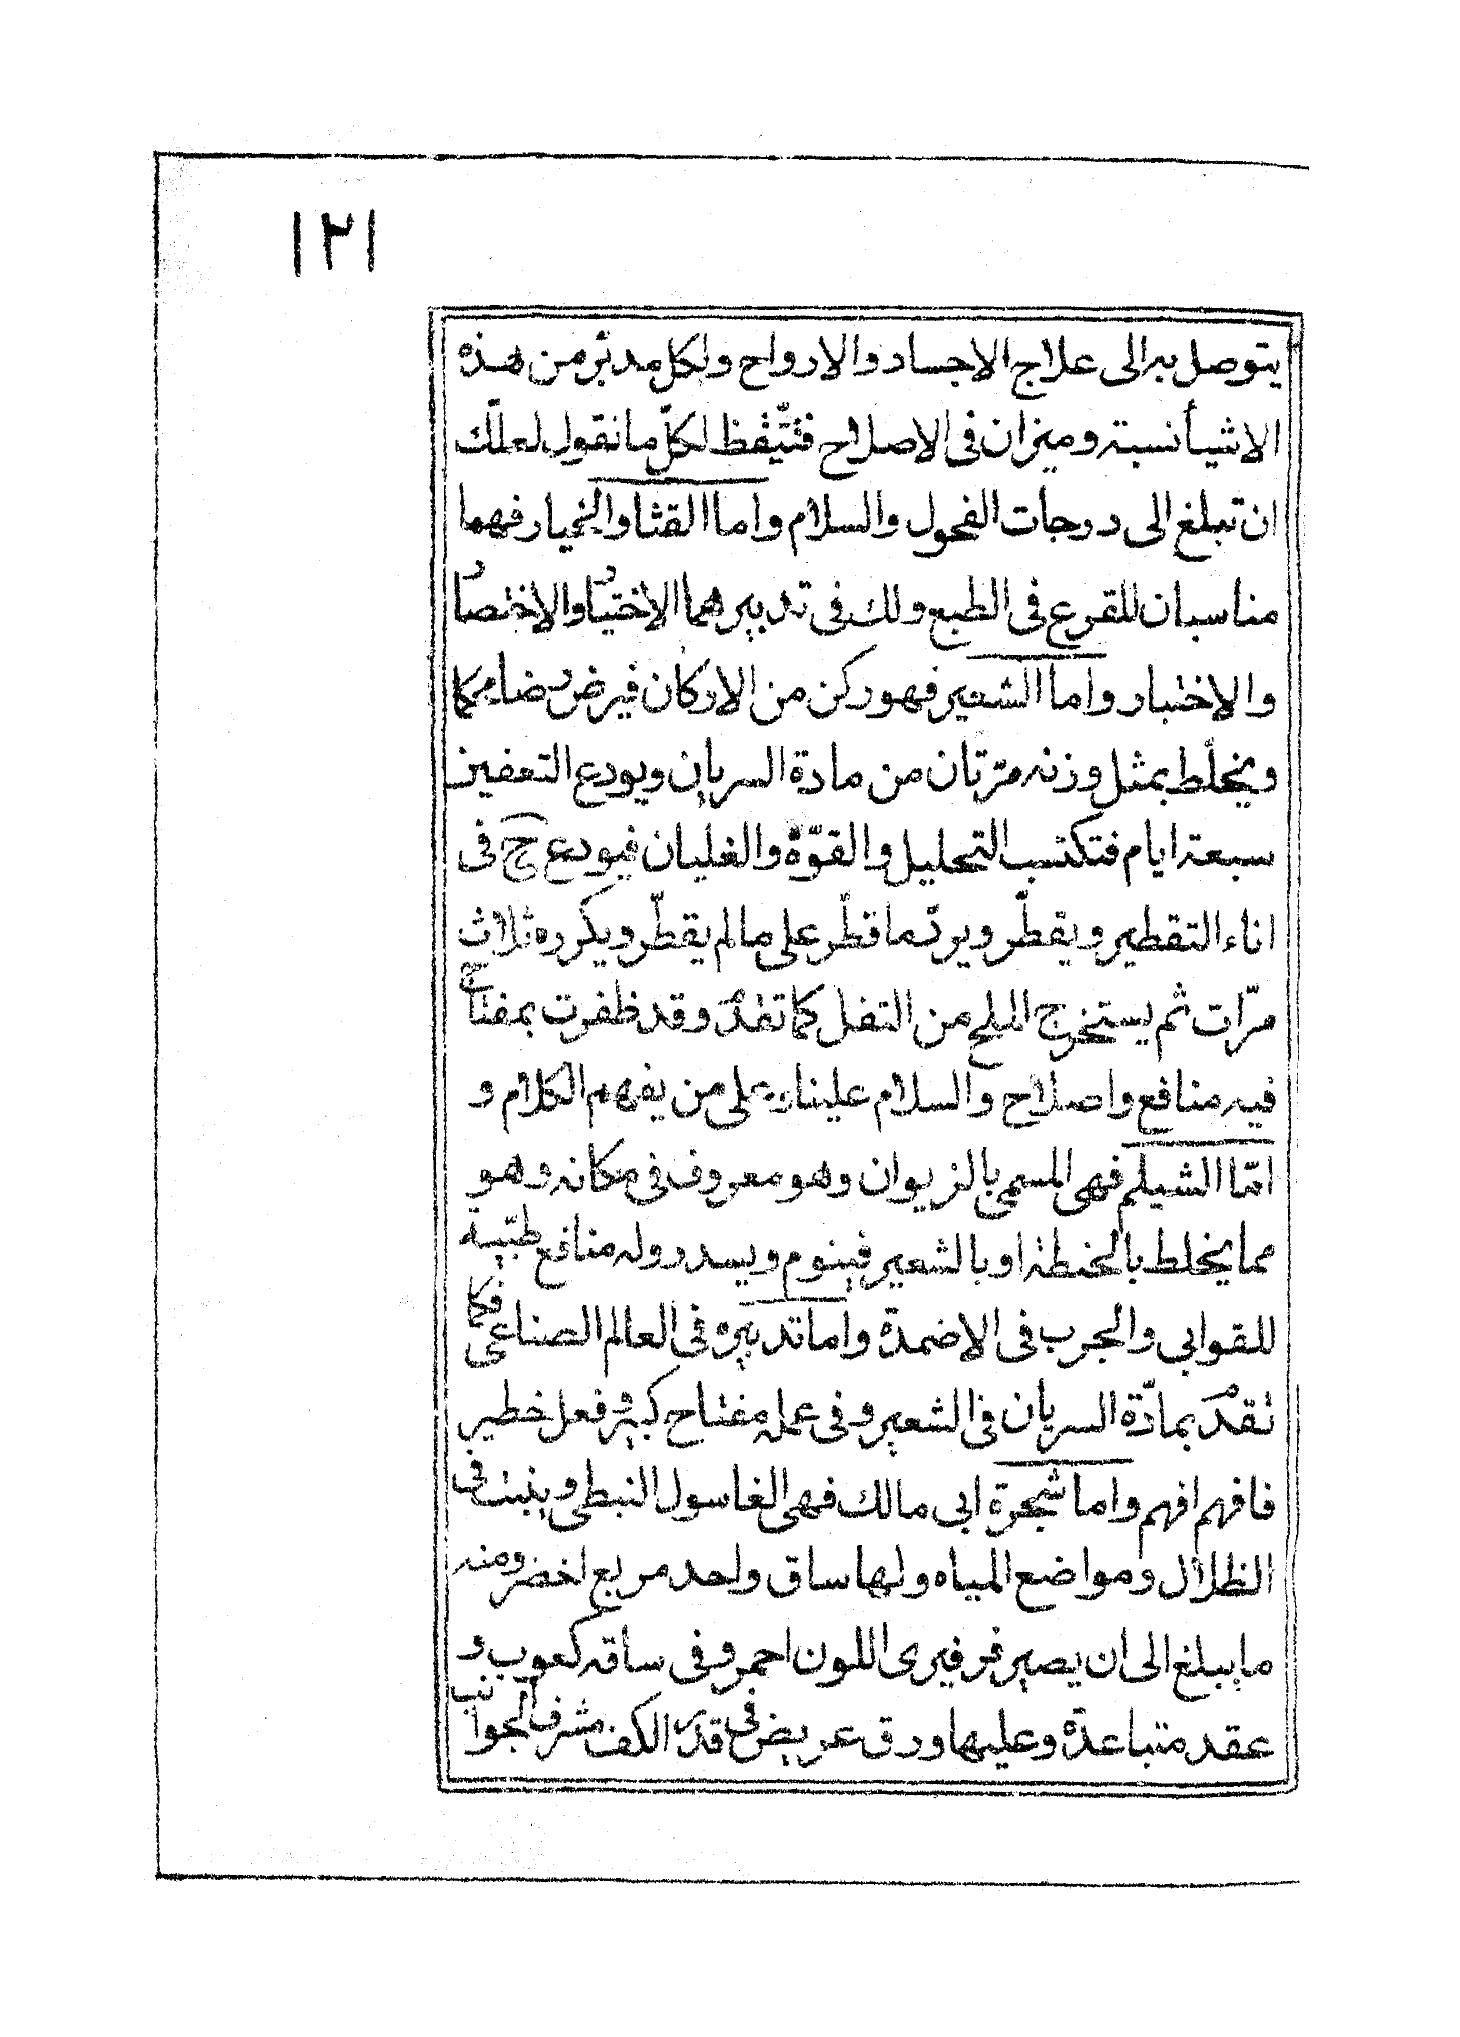 ١٢١
يتوصل به الى علاج الاجساد والارواح ولكل مدبّر من هذه
الاشيأ نسبة وميزان فى الاصلاح فتيّقظ لكلّ ما نقول لعلّك
ان تبلغ الى درجات الفحول والسلام واما القثا والخيار فهما
مناسبان للقرع فى الطبع ولك فى تدبيرهما الاختيار والاختصار
والاختبار واما الشعير فهو ركن من الاركان فيرض رضا محكما
ويخلّط بمثل وزنه مرّتان من مادة السريان ويودع التعفين
سبعة ايام فتكتسب التحليل والقوّة والغليان فيودع ح فى
اناء التقطير ويقطّر ويردّ ما قطّر على ما لم يقطّر ويكرره ثلاث
مرّات ثم يستخرج الملح من التفل كما تقدم وقد ظفرت بمفتاح
فيه منافع واصلاح والسلام علينا وعلى من يفهم الكلام و
امّا الشيلم فهى المسمى بالزيوان وهو معروف فى مكانه وهو
مما يخلط بالحنطة او بالشعير فينوم ويسدر وله منافع طبّيّة
للقوابى والجرب فى الاضمدة واما تدبيره فى العالم الصناعى فكما
تقدم بمادّة السريان فى الشعير وفى عمله مفتاح كبير وفعل خطير
فافهم افهم واما شجرة ابى مالك فهى الغاسول النبطى وينبت فى
الظلال ومواضع المياه ولها ساق واحد مربع اخضر ومنه
ما يبلغ الى ان يصير فرفيرى اللون احمر وفى ساقه كعوب و
عقد متباعدة وعليها ورق عريض فى قدر الكف مشرف الجوانب